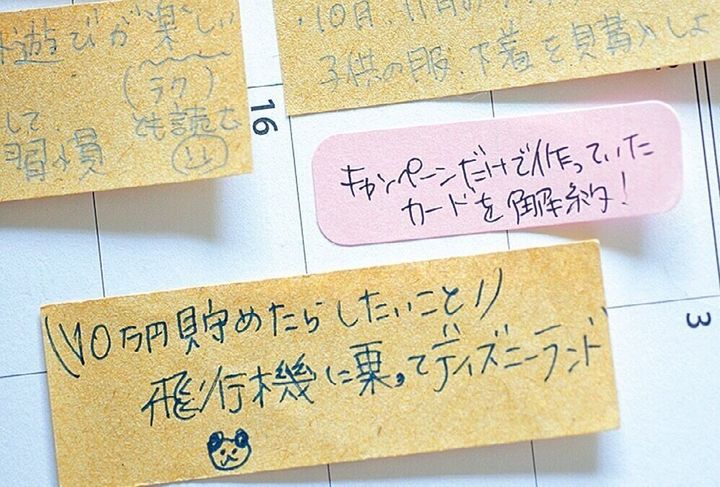 遊びが楽しい
(ラク)
して も読む
習慣
・10月、11月の
子供の服、下着を購入しよ
16
キャンペーンだけで作っていた
カードを解約!
3
\\10万円貯めたらしたいこと//
飛行機に乗ってディズニーランド